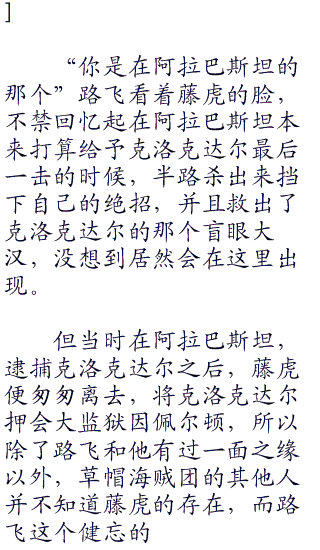 ]
“你是在阿拉巴斯坦的
那个”路飞看着藤虎的脸，
不禁回忆起在阿拉巴斯坦本
来打算给予克洛克达尔最后
一击的时候，半路杀出来挡
下自己的绝招，并且救出了
克洛克达尔的那个盲眼大
汉，没想到居然会在这里出
现。
但当时在阿拉巴斯坦，
逮捕克洛克达尔之后，藤虎
便匆匆离去，将克洛克达尔
押会大监狱因佩尔顿，所以
除了路飞和他有过一面之缘
以外，草帽海贼团的其他人
并不知道藤虎的存在，而路
飞这个健忘的